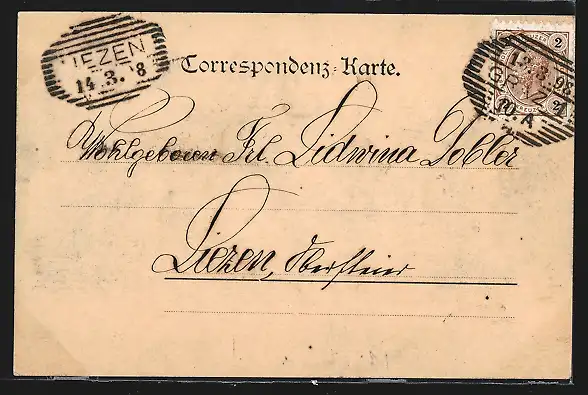 LIEZEN
14.3.8
Correspondenz-Karte.
2
12.3.98
GRAZ
10.A
2
Wohlgeboren Frl. Lidwina Dobler
Liezen, Obersteier